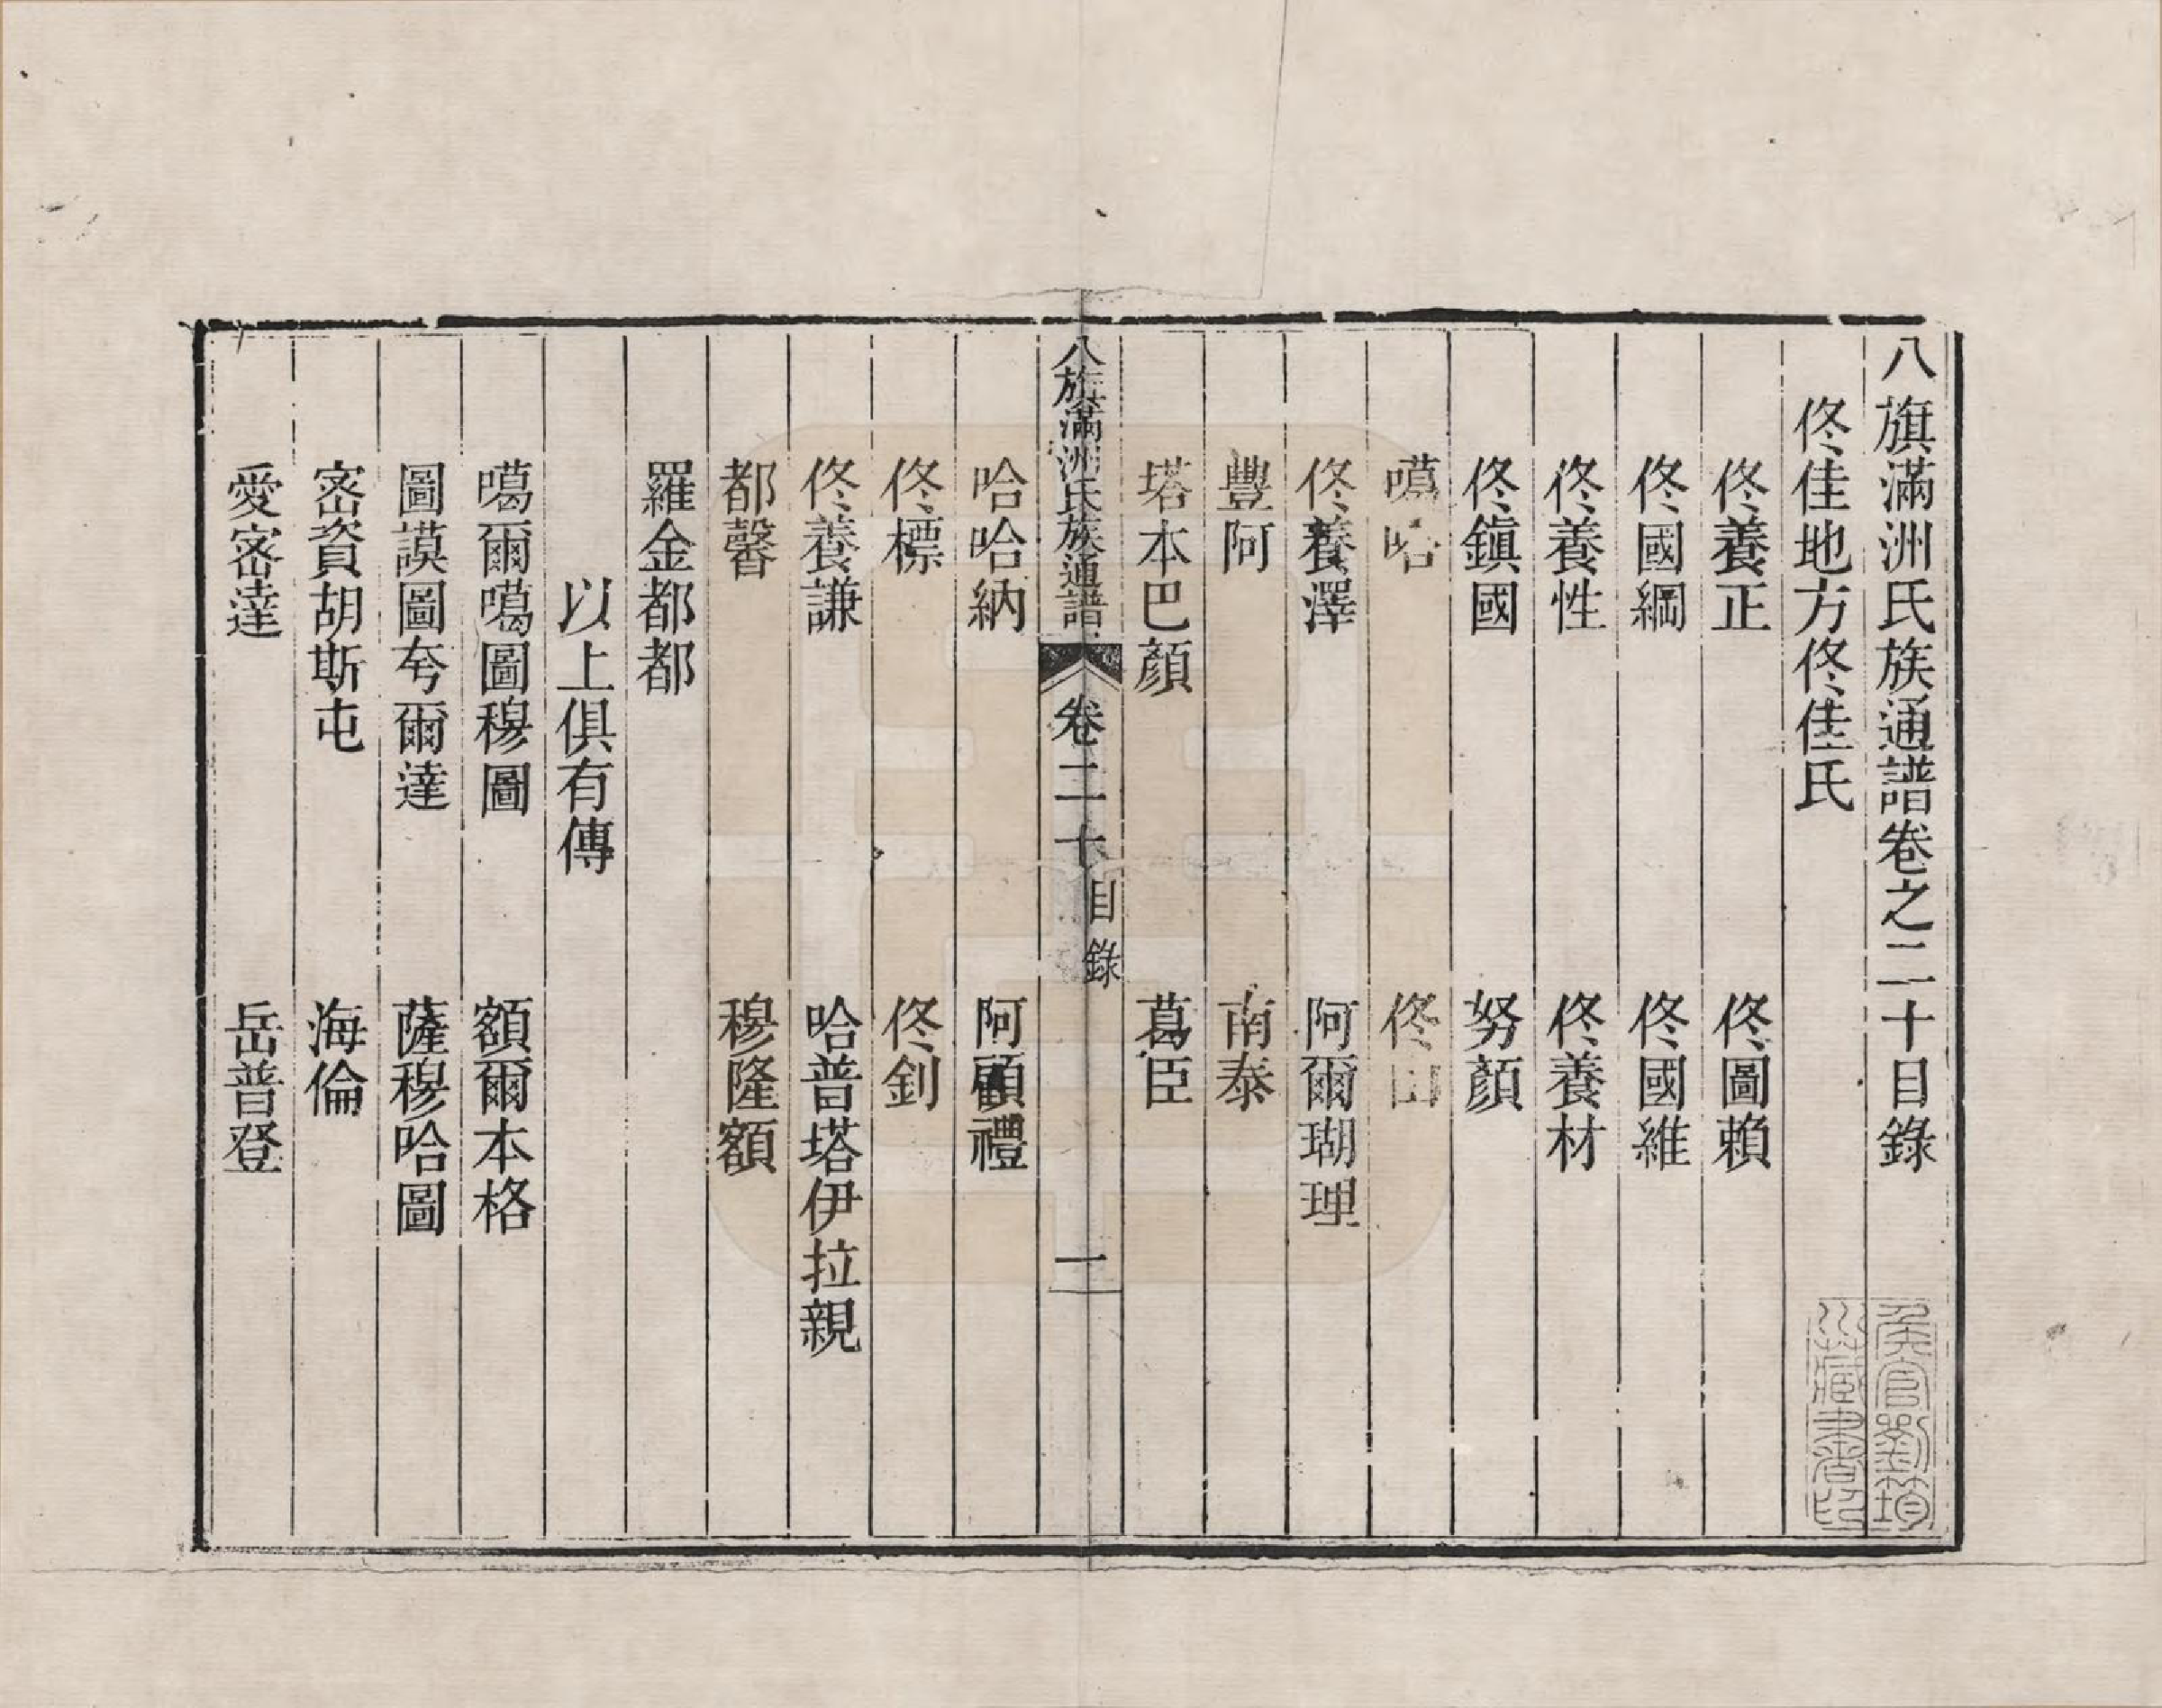 八旗滿洲氏族通譜卷之二十目錄
佟佳地方佟佳氏
佟養正　佟圖賴
佟國綱　佟國維
佟養性　佟養材
佟鎮國　努顏
噶哈　佟
佟養澤　阿爾瑚理
豐阿　南泰
塔本巴顏　葛臣
八旗滿洲氏族通譜　卷二十目錄　一
哈哈納　阿顧禮
佟標　佟釗
佟養謙　哈普塔伊拉親
都馨　穆隆額
羅金都都
以上俱有傳
噶爾噶圖穆圖　額爾本格
圖謨圖夸爾達　薩穆哈圖
宻資胡斯屯　海倫
愛宻達　岳普登
侯官劉筠川藏書香印